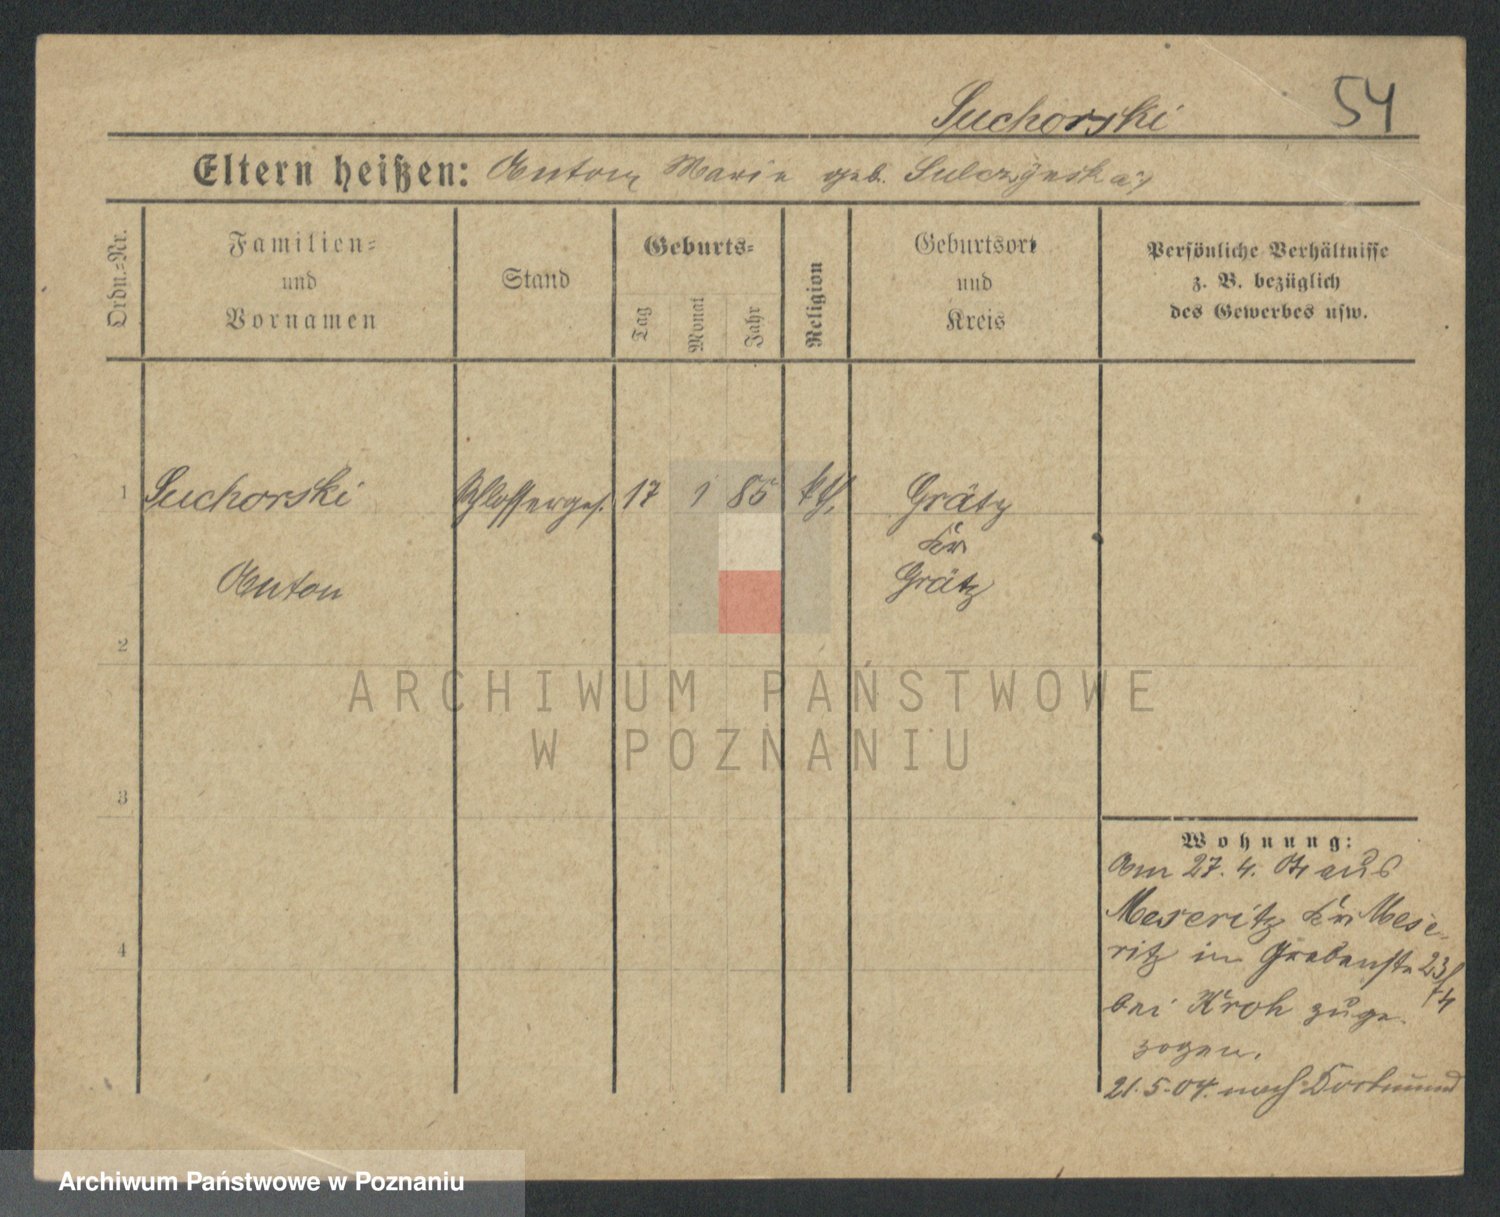 Suchorski 54
Eltern heißen: Anton, Marie geb. Sulczynska
Ordn.=Nr.
Familien=
und
Vornamen
Stand
Geburts=
Tag
Monat
Jahr
Religion
Geburtsort
und
Kreis
Persönliche Verhältnisse
z. B. bezüglich
des Gewerbes usw.
1 Suchorski Schlosserges. 17 1 85 kth. Grätz
Kr
Anton Grätz
2
ARCHIWUM PAŃSTWOWE
W POZNANIU
3
4
Wohnung:
Am 27. 4. 04 aus
Meseritz Kr Mese-
ritz in Grabenstr 23/
bei Kroh zuge-
zogen.
21.5.04. nach Dortmund
Archiwum Państwowe w Poznaniu